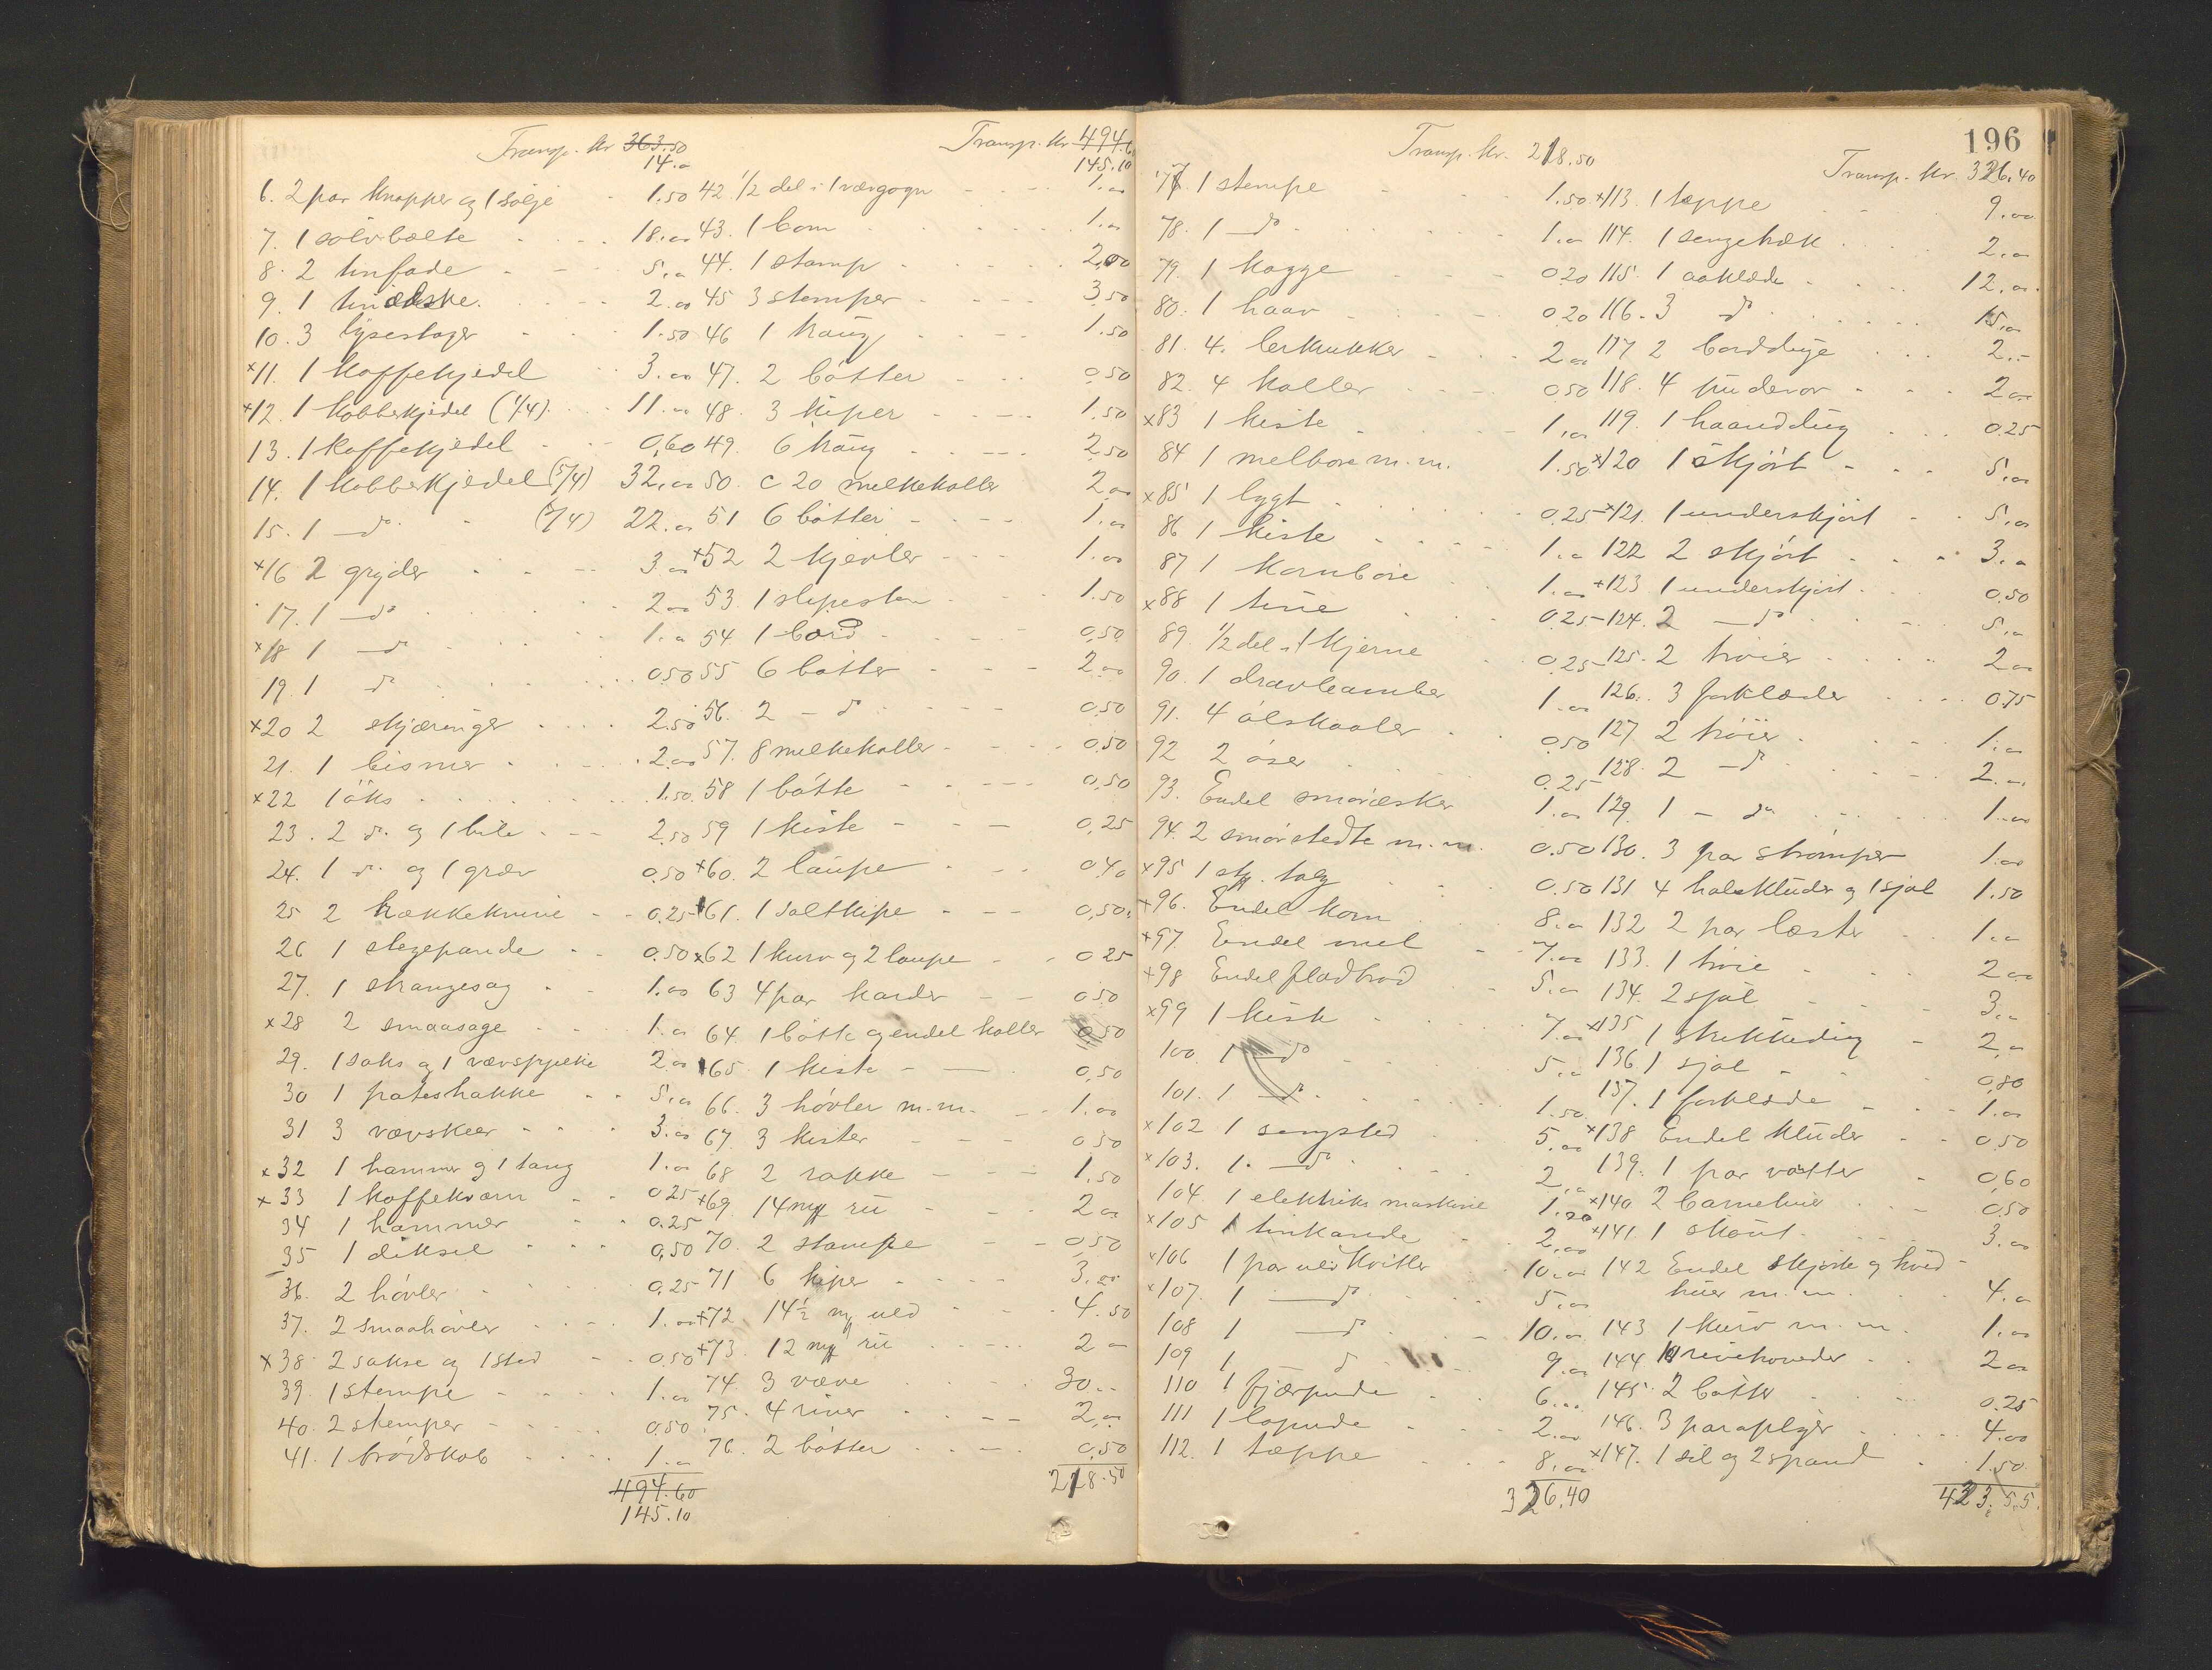 Transp. kr 363.50
14.00
6. 2 par knapper og 1 sølje 1.50
7. 1 sølvbælte 18.00
8. 2 tinfade 5.00
9. 1 tinæske. 2.00
10. 3 lysestager 1.50
×11. 1 kaffekjedel 3.00
×12. 1 kobbekjedel (1/4) 11.00
13. 1 kaffekjedel 0,60
14. 1 kobbekjedel (5/4) 32.00
15. 1 do (5/4) 22.00
×16 2 gryder 3.00
17. 1 do 2.00
×18 1 do 1.00
19. 1 do 0.50
×20 2 skjæringer 2.50
21. 1 bismer 2.00
×22 1 øks 1.50
23. 2 do. og 1 bile 2.50
24. 1 do. og 1 græv 0.50
25 2 hækkeknive 0.25
26 1 stegepande 0.50
27. 1 strangesag 1.00
×28 2 smaasage 1.00
29. 1 saks og 1 vævspjelke 2.00
30 1 poteshakke 5.00
31 3 vævskeer 3.00
×32 1 hammer og 1 tang 1.00
×33 1 kaffekværn 0.25
34 1 hammer 0.25
35 1 diksel 0,50
36. 2 høvler 0,25
37. 2 smaahøvler 1.00
×38 2 sakse og 1 sted 0.50
39. 1 stempe 1.00
40. 2 stemper 0,50
41. 1 brødskab 1.00
494.60
145.10
Transp. kr 494.6
145.10
42. 1/2 del i 1 vævgogn 1.00
43. 1 bom 1.00
44. 1 stamp 2,00
45 3 stemper 3,50
46 1 traug 1.50
47. 2 bøtter 0,50
48. 3 kiper 1.50
49. 6 traug 2,50
50. c 20 melkekoller 2.00
51 6 bøtter 1.00
×52 2 kjevler 1.00
53. 1 slipesten 1.50
54. 1 bord 0.50
55 6 bøtter 2.00
56. 2 do 0,50
57. 8 melkekoller 0,50
58 1 bøtte 0,50
59 1 kiste 0,25
×60. 2 laupe 0,40
61. 1 saltkipe 0,50
×62 1 kurv og 2 laupe 0 25
63 4 par karder 0,50
64. 1 bøtte og endel koller 0,50
65. 1 kiste 0,50
66. 3 høvler m.m. 1.00
67. 3 kister 0,50
68 2 rokke 1.50
×69. 14 mk ru 2.00
70. 2 stampe 0,50
71 6 kiper 3.00
×72 14½ mk uld 4.50
×73. 12 mk ru 2 —
74 3 væve 30.—
75. 4 river 2.00
76. 2 bøtter 0,50
218.50
Transp. kr. 218.50
77. 1 stempe 1.50
78. 1 do 1.00
79. 1 kagge 0.20
80. 1 haav 0.20
81. 4. lerkrukker 2.00
82. 4 koller 0.50
×83 1 kiste 1.00
84 1 melbøre m.m. 1.50
×85 1 lygt 0.25
86 1 kiste 1.00
87 1 kornbøre 1.00
×88 1 tine 0.25
89. 1/2 del i 1 kjerne 0.25
90. 1 dravleambar 1.00
91. 4 ølskaaler 0.50
92 2 øser 0.25
93. Endel smøræsker 1.00
94. 2 smørstedte m.m. 0.50
×95 1 stk. talg 0.50
×96. Endel korn 8.00
×97. Endel mel 7.00
×98 Endel fladbrød 5.00
×99 1 kiste 7.00
100. 1 do 5.00
101. 1 do 1.50
×102 1 sengsted 5.00
×103. 1. do 2.00
104. 1 elektrisk maskine 1.00
×105 1 tinkande 2.00
×106 1 par uldkvitler 10.00
×107. 1 do 5.00
108 1 do 10.00
109 1 do 9.00
110 1 fjærpude 6.00
111 1 lopude 2.00
112. 1 tæppe 8.00
326.40
196
Transp. kr. 326.40
×113. 1 tæppe 9.00
114. 1 sengetrek 2.00
115. 1 aaklæde 12.00
116. 3 do 15.00
117 2 borddüge 2.—
118. 4 pudevor 2.00
119. 1 haanddüg 0.25
×120 1 skjørt 5.00
×121. 1 underskjørt 5.00
122 2 skjørt 3.00
×123 1 underskjørt 0.50
124. 2 do 5.00
125. 2 trøier 2.00
126. 3 forklæder 0.75
127 2 trøier 1.00
128. 2 do 2.00
129. 1 — do 1.00
130. 3 par strømper 1.00
131 4 halsklude og 1 sjal 1.50
132 2 par læster 1.00
133. 1 trøie 2.00
134. 2 sjal 3.00
×135 1 strikketrøie 2.00
136 1 sjal 0,80
137. 1 forklæde 1.00
×138 Endel klüder 0.50
139. 1 par vøtter 0,60
×140 2 barnehuer 0,50
×141. 1 skaut 3.00
142 Endel skjorte og hvid-
huer m.m. 4.00
143 1 kurv m.m. 1.00
144 10 rivehoveder 2.00
145. 2 bøtter 0.25
146. 3 paraplyer 4.00
×147. 1 sil og 2 spand 1.50
423.55.